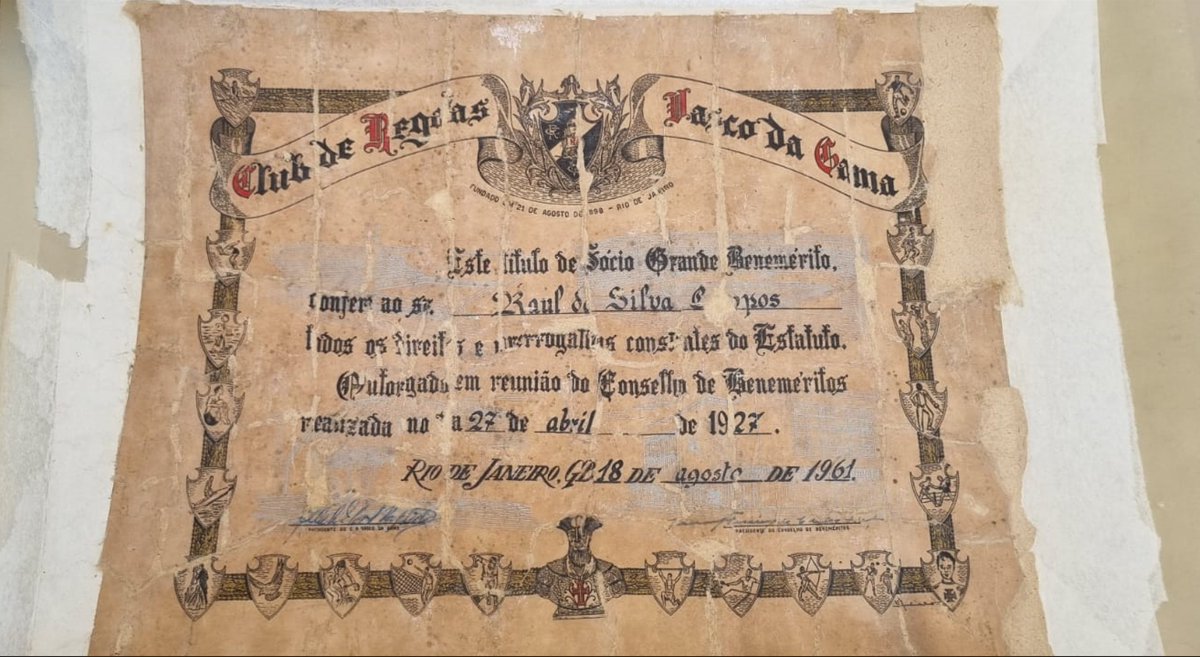 Club de Regatas Vasco da Gama
FUNDADO EM 21 DE AGOSTO DE 1898 - RIO DE JANEIRO
Este titulo de Sócio Grande Benemérito,
confere ao sr. Raul da Silva Campos
todos os direitos e prerrogativas constantes do Estatuto.
Outorgado em reunião do Conselho de Beneméritos
realizada no dia 27 de abril de 1927.
RIO DE JANEIRO, GB 18 DE agosto DE 1961.
PRESIDENTE DO C.R. VASCO DA GAMA
PRESIDENTE DO CONSELHO DE BENEMÉRITOS